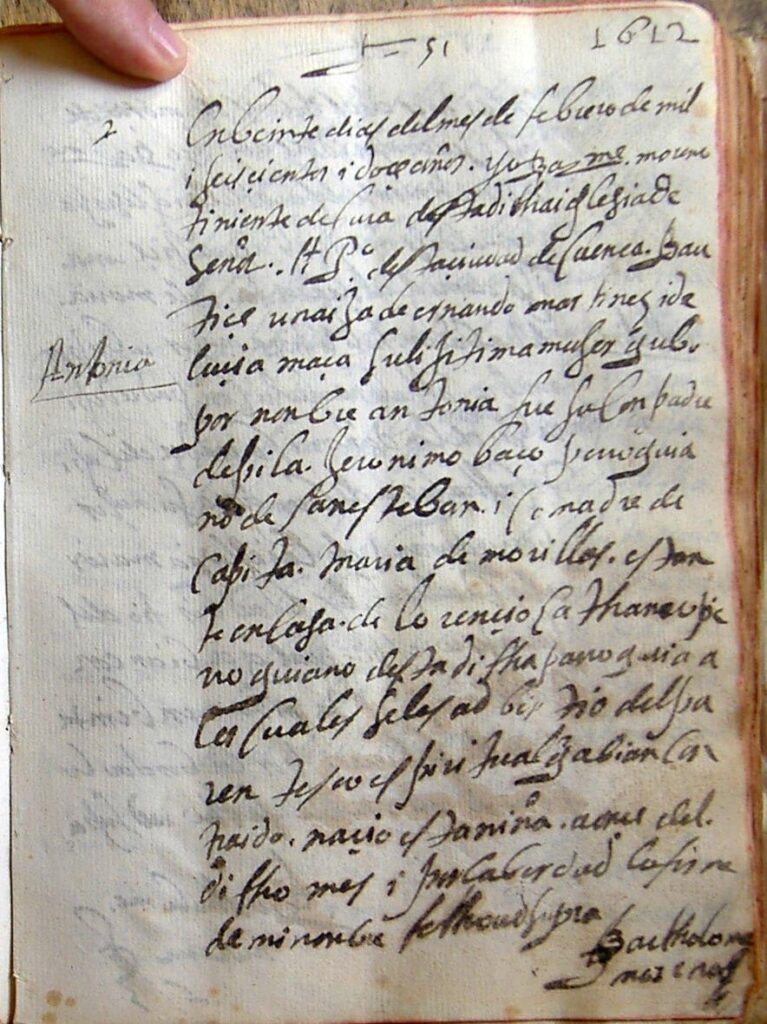 51
1612
2
En beinte dias del mes de febrero de mil
i seiscientos i doce años. yo Bar.me moreno
tiniente de cura desta dicha iglesia de
Señor S. P.º desta ciudad de Cuenca. Bau
tice una ija de ernando martinez i de
Antonia
luisa maça su lijitima mujer q ubo
por nonbre antonia fue su conpadre
de pila. Jeronimo baço perroquia
no de san esteban. i comadre de
capita. maria de morillos. estan
te en casa. de lorencio
rroquiano desta dicha parroquia a
los cuales seles adbirtio del pa
rentesco espiritual q abian con
traido. nacio esta niña. a del
dicho mes i por la berdad lo firme
de mi nonbre fecho ud supra
Bartholome
moreno